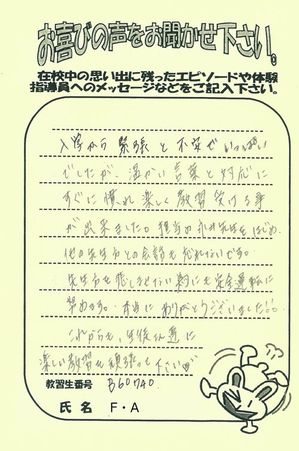 お喜びの声をお聞かせ下さい。
在校中の思い出に残ったエピソードや体験
指導員へのメッセージなどをご記入下さい。
入学から 緊張と不安でいっぱい
でしたが、温かい言葉と対応に
すぐに慣れ楽しく教習受ける事
が出来ました。担当の 先生をはじめ、
他の先生方との会話も忘れないです。
先生方を悲しませない為にも安全運転に
努めます。本当にありがとうございました!!
これからも、生徒さん達に
楽しい教習を頑張って下さい
教習生番号 B60740
氏名 F・A